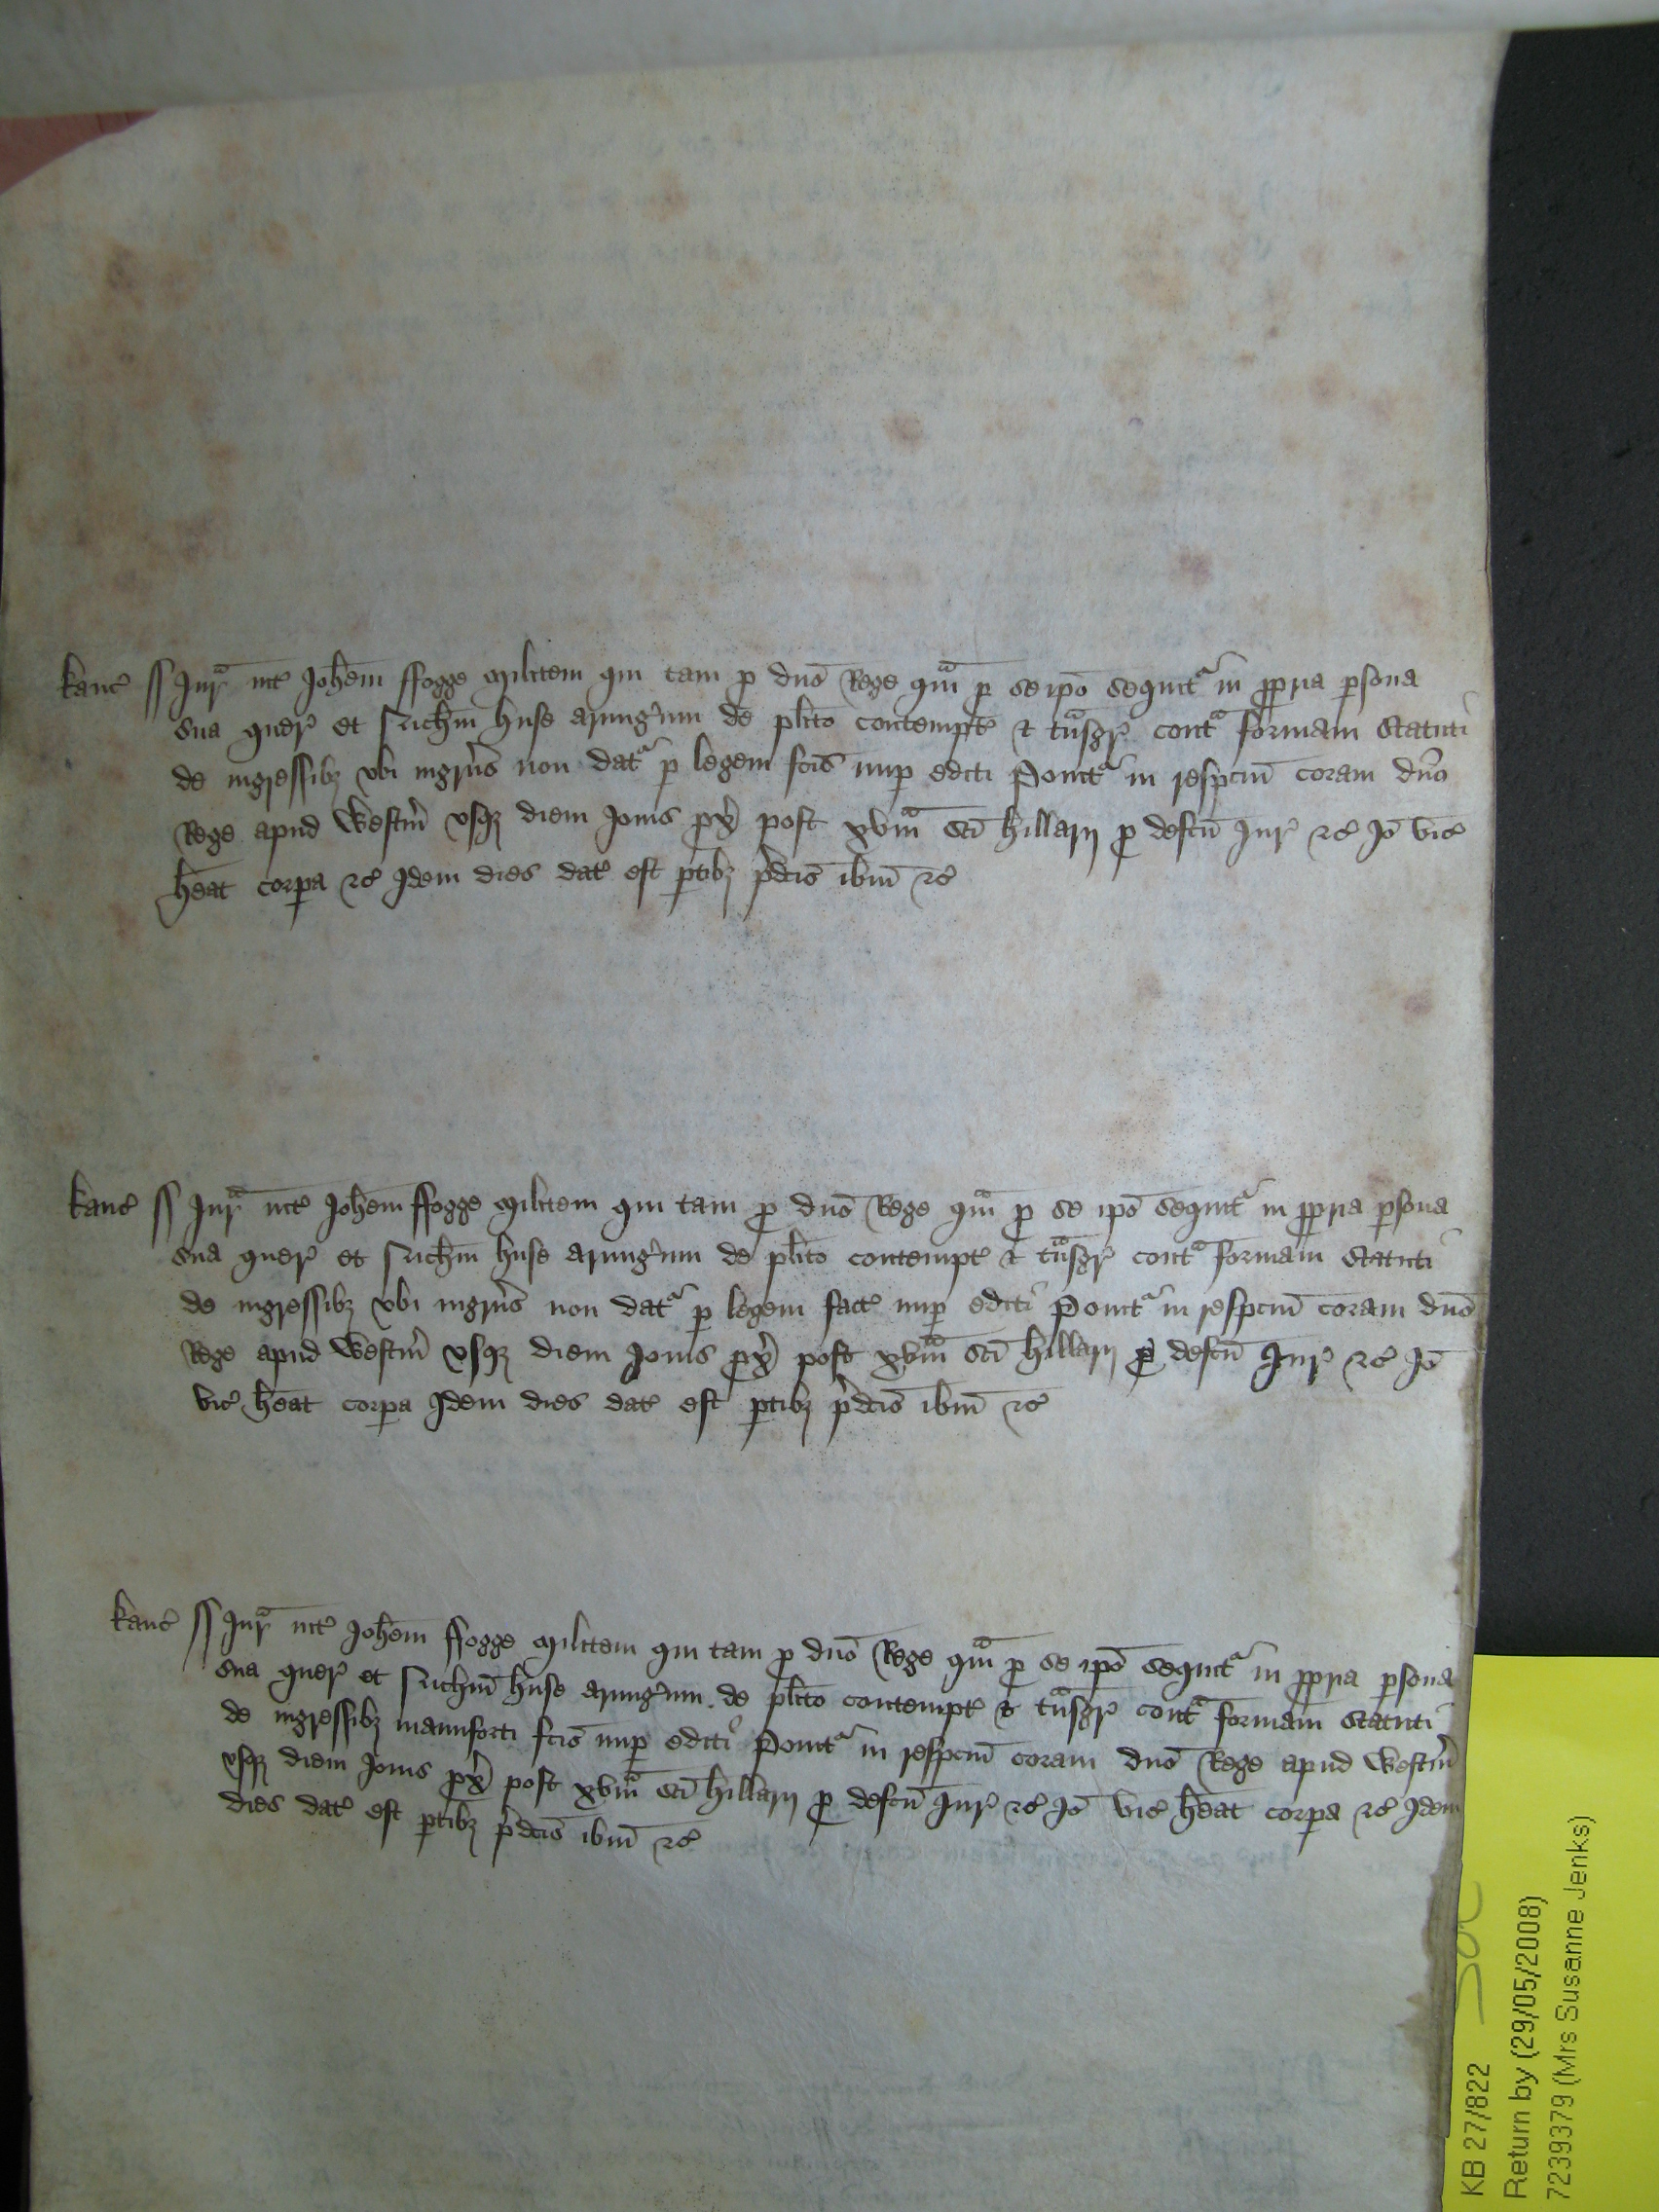 kanc̃ ss Jur̃ int̃ Joh̃em ffogge militem qui tam p dño Rege qm̃ p se ip̃o sequit᷑ in ppria psona
sua quer̃ et Ric̃hm huse armig̃um de plĩto contempt̃ & tñsgr̃ cont̃ formam Statuti
de ingressibȝ vbi ingrũs non dat᷑ p legem fc̃is nup editi Ponit᷑ in respc̃m coram dño
Rege apud Westm̃ vsqȝ diem Jouis px̃ post xvm̃ Sc̃i hillarij p defc̃u Jur̃ &c̃ Jõ vic̃
hẽat corpa &c̃ Jdem dies dat̃ est ptibȝ p̃dc̃is ibm̃ &c̃
kanc̃ ss Jur̃ int̃ Joh̃em ffogge militem qui tam p dño Rege qm̃ p se ip̃o sequit᷑ in ppria psona
sua quer̃ et Ric̃hm huse armig̃um de plĩto contempt̃ & tñsgr̃ cont̃ formam Statuti
de ingressibȝ vbi ingrũs non dat᷑ p legem fact̃ nup editi Ponit᷑ in respc̃m coram dño
Rege apud Westm̃ vsqȝ diem Jouis px̃ post xvm̃ Sc̃i hillarij p defc̃u Jur̃ &c̃ Jõ
vic̃ hẽat corpa Jdem dies dat̃ est ptibȝ p̃dc̃is ibm̃ &c̃
kanc̃ ss Jur̃ int̃ Joh̃em ffogge militem qui tam p dño Rege qm̃ p se ip̃o sequit᷑ in ppria psona
sua quer̃ et Ric̃hm huse armig̃um de plĩto contempt̃ & tñsgr̃ cont̃ formam Statuti
de ingressibȝ manuforti fc̃is nup editi Ponit᷑ in respc̃m coram dño Rege apud Westm̃
vsqȝ diem Jouis px̃ post xvm̃ Sc̃i hillarij p defc̃u Jur̃ &c̃ Jõ vic̃ hẽat corpa &c̃ Jdem
dies dat̃ est ptibȝ p̃dc̃is ibm̃ &c̃
KB 27/822
Return by (29/05/2008)
7239379 (Mrs Susanne Jenks)